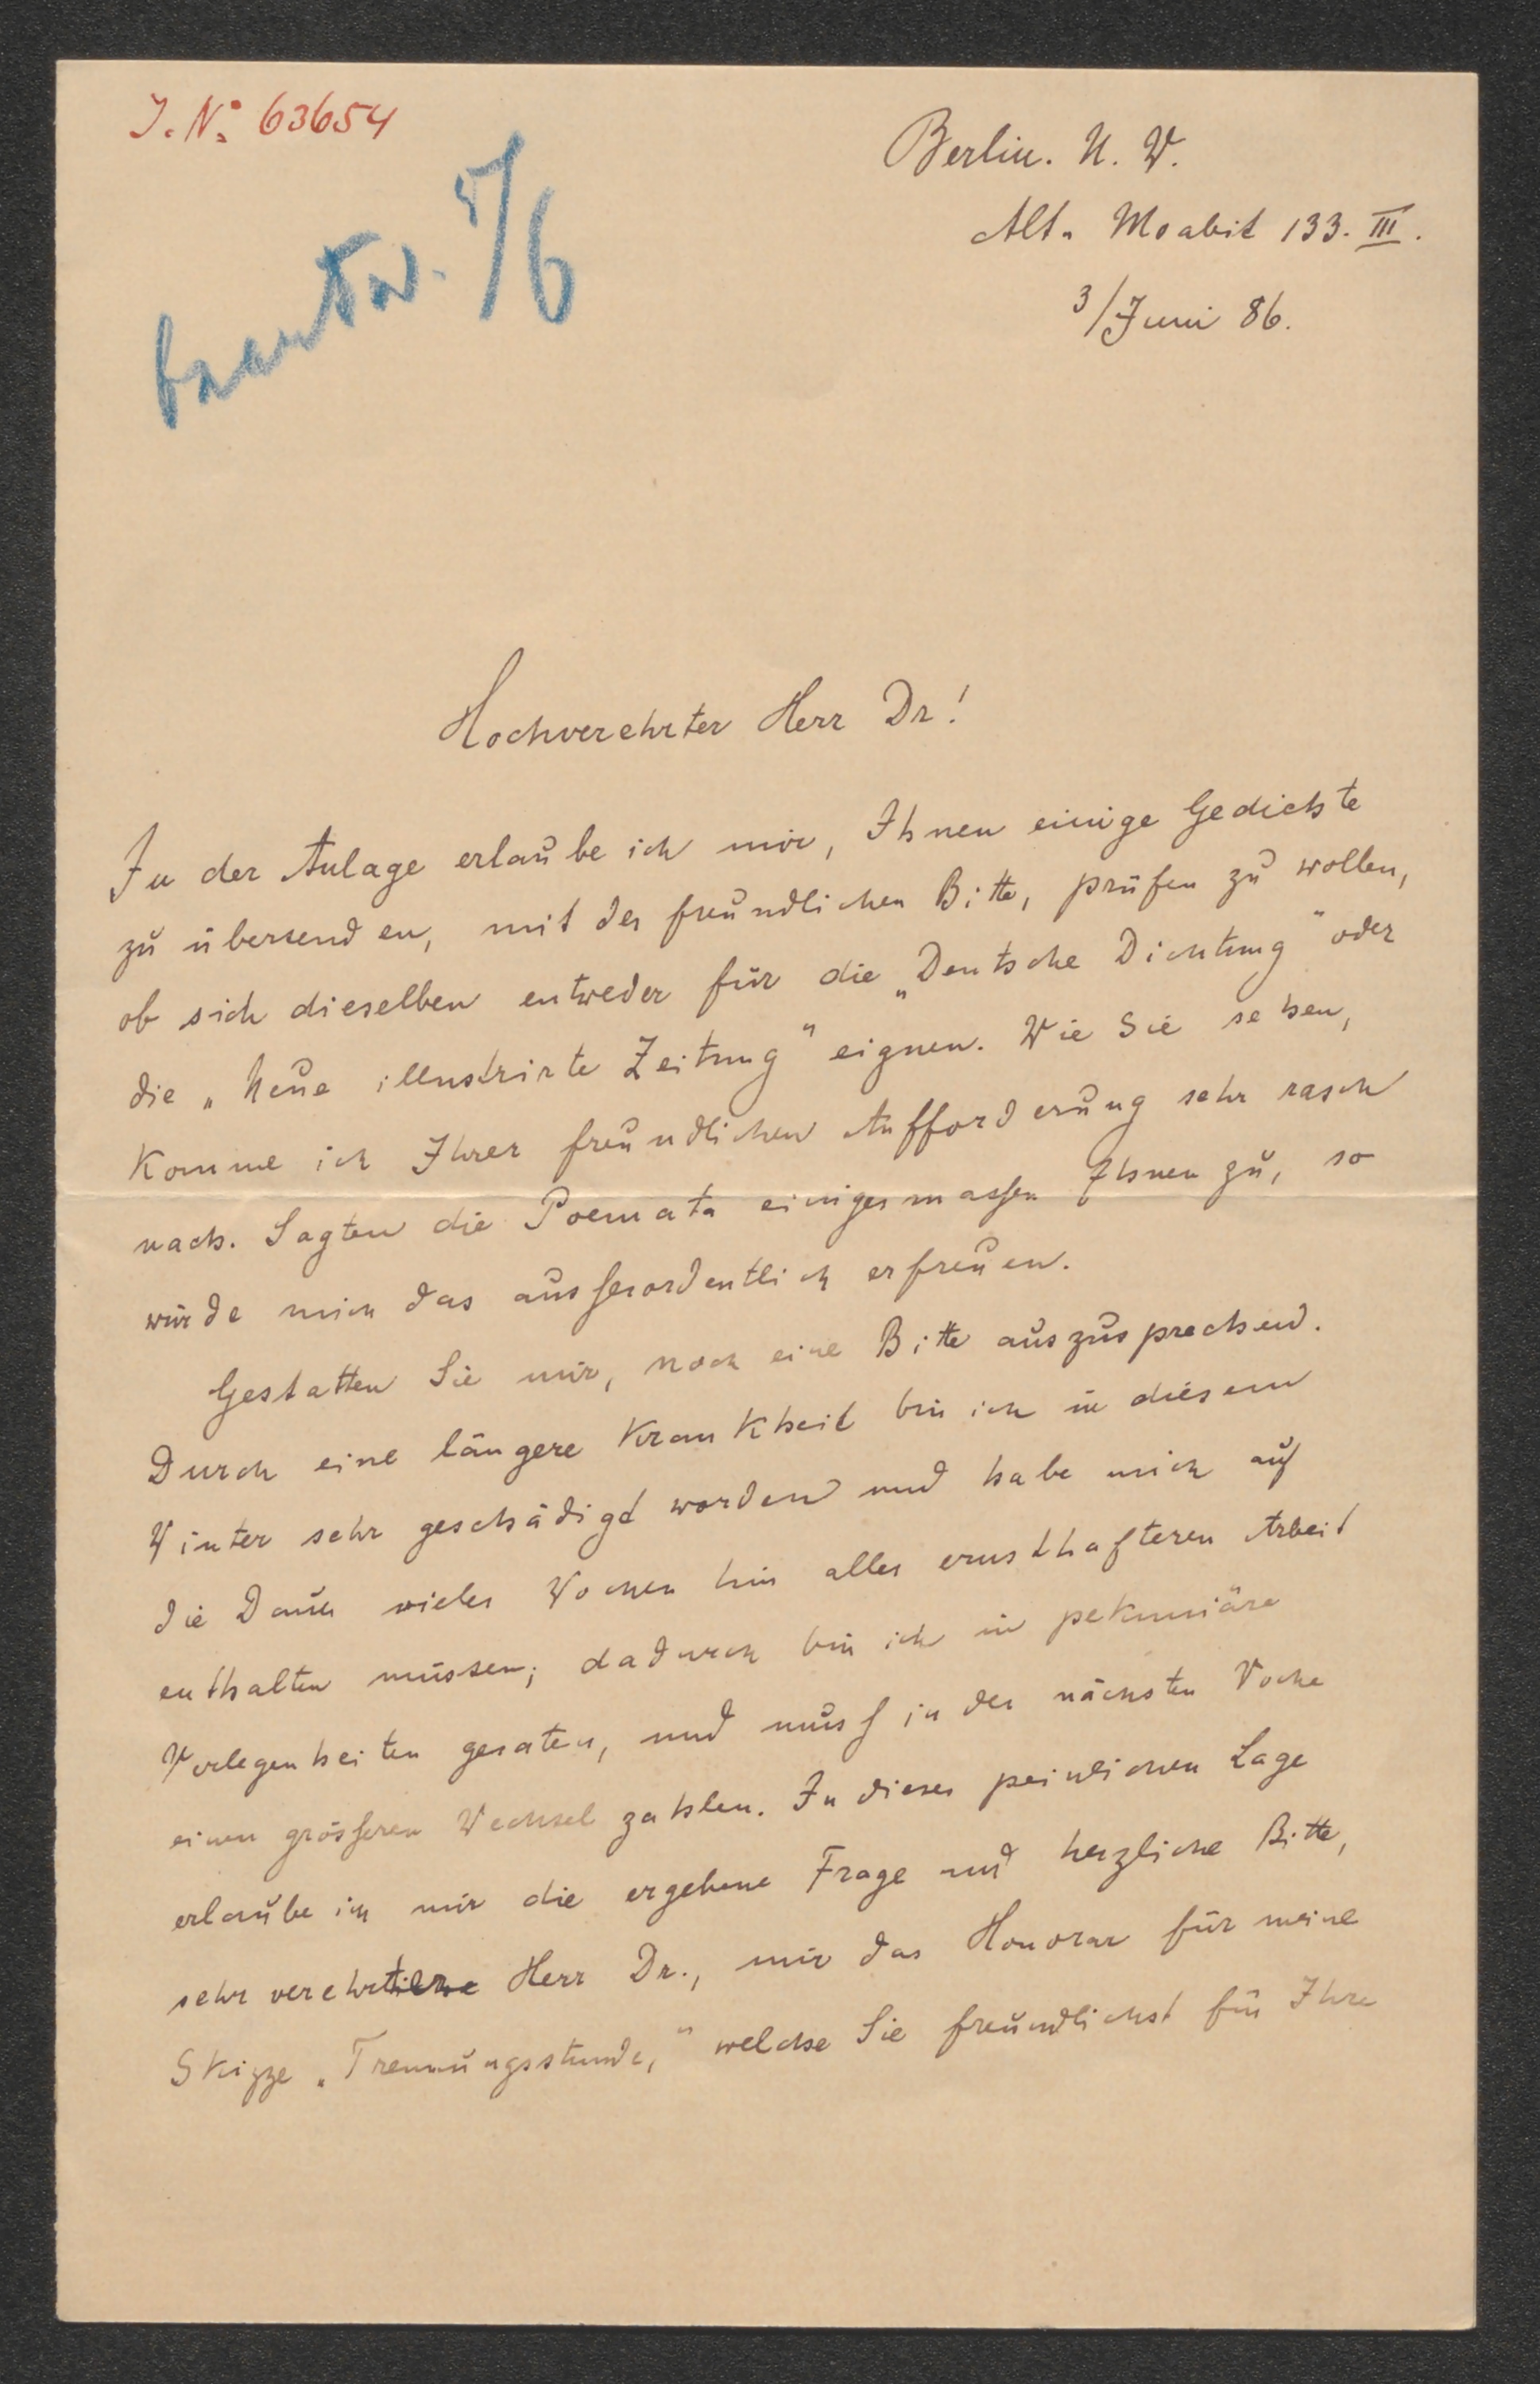 J. N: 63654
beantw. 5/6
Berlin. N. W.
Alt. Moabit 133. III.
3/Juni 86.
Hochverehrter Herr Dr!
In der Anlage erlaube ich mir, Ihnen einige Gedichte
zu übersenden, mit der freundlichen Bitte, prüfen zu wollen,
ob sich dieselben entweder für die „Deutsche Dichtung" oder
die „Neue illustrirte Zeitung" eignen. Wie Sie sehen,
komme ich Ihrer freundlichen Aufforderung sehr rasch
nach. Sagten die Poemata einigermassen Ihnen zu, so
würde mich das ausserordentlich erfreuen.
Gestatten Sie mir, noch eine Bitte auszusprechen.
Durch eine längere Krankheit bin ich in diesem
Winter sehr geschädigt worden und habe mich auf
die Dauer vieler Wochen hin aller ernsthafteren Arbeit
enthalten müssen; dadurch bin ich in pekuniäre
Verlegenheiten geraten, und muss in der nächsten Woche
einen grösseren Wechsel zahlen. In dieser peinlichen Lage
erlaube ich mir die ergebene Frage und herzliche Bitte,
sehr verehrter Herr Dr., mir das Honorar für meine
Skizze „Trennungsstunde," welche Sie freundlichst für Ihre